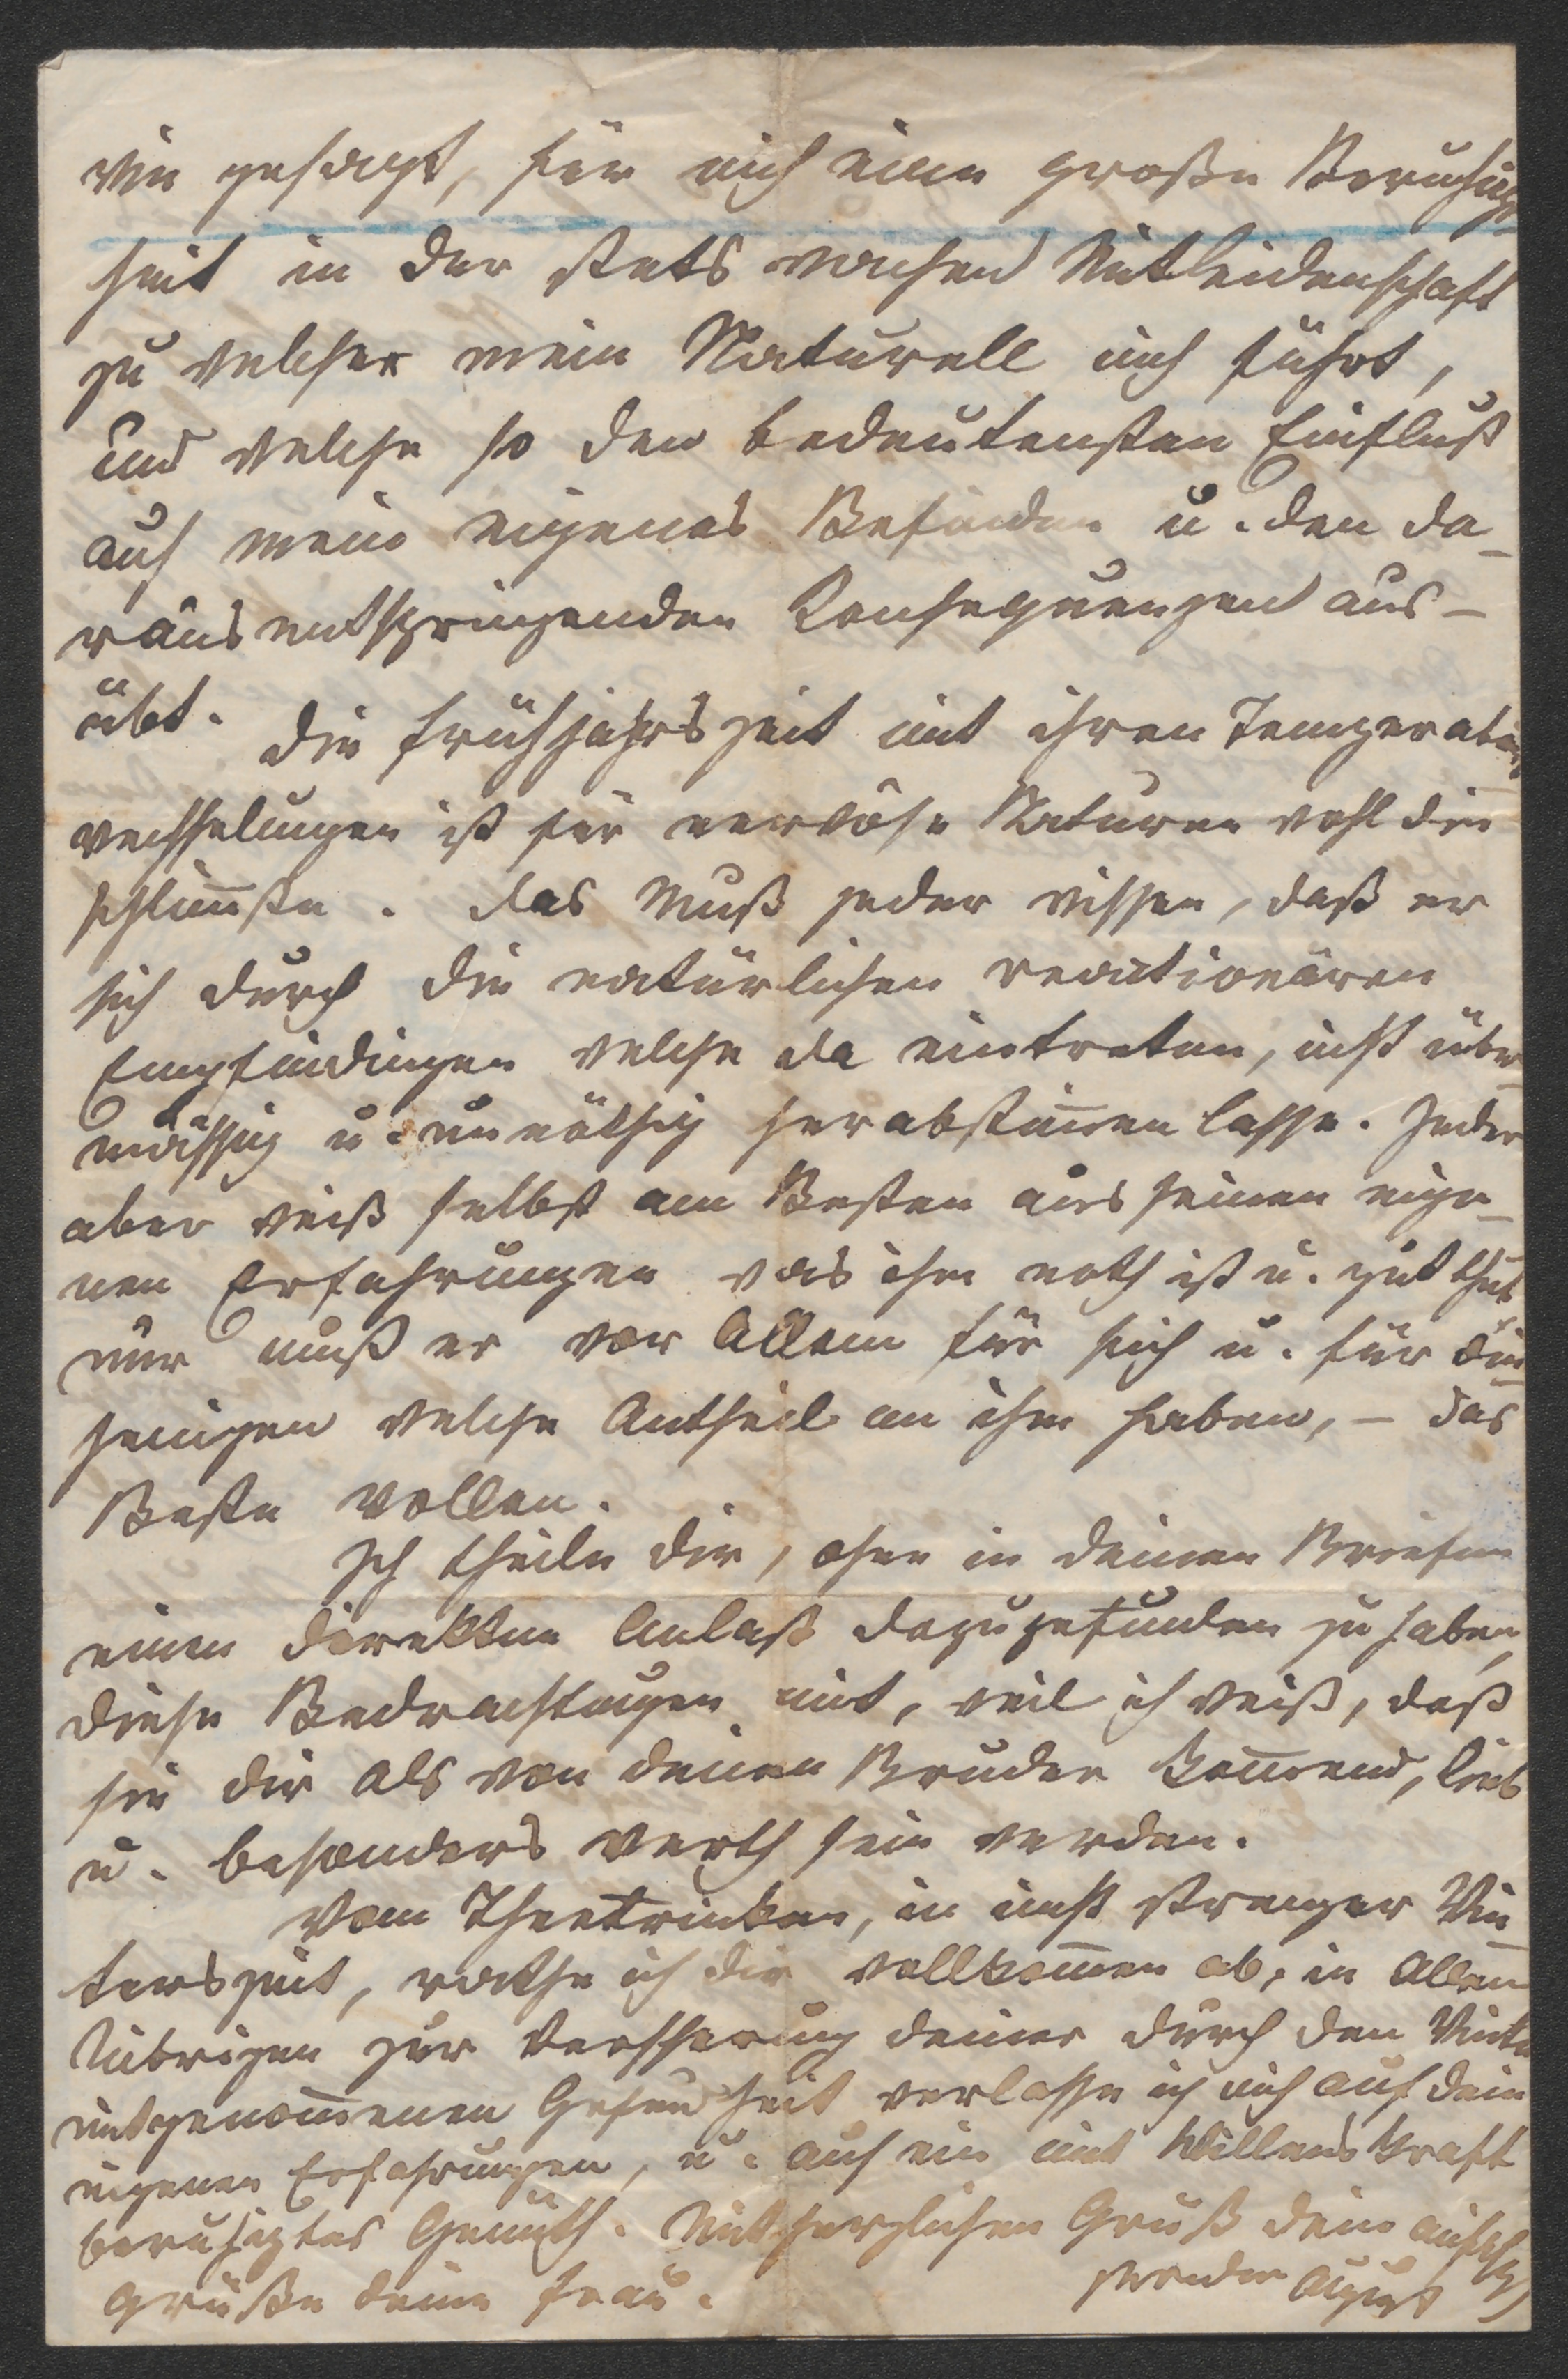 wie gesagt, für mich eine große Beruhigt-
heit in der stets wachen Mitleidenschaft
zu welcher mein Naturell mich führt,
und welche so den bedeutensten Einfluß
auf mein eigenes Befinden u. den da-
raus entspringenden Consequenzen aus-
übt. Die Frühjahrszeit mit ihren Temperatur
wechselungen ist für nervöse Naturen wohl die
schlimmste. Das Muß jeder wissen, daß er
sich durch die natürlichen reactionären
Empfindungen welche da eintreten, nicht über
mässig u. unnöthig herabstimmen lasse. Jeder
aber weiß selbst am Besten aus seinen eige-
nen Erfahrungen was ihm noth ist u. gut thut
nur muß er vor Allem für sich u. für die-
jenigen welche Antheil an ihm haben, – das
Beste wollen.
Ich theile dir, ohne in deinen Briefen
einen direkten Anlaß dazu gefunden zu haben,
diese Bedrachtungen mit, weil ich weiß, daß
sie dir als von deinem Bruder kommend, lieb
u. besonders werth sein werden.
Vom Theetrinken, in nicht strenger Win-
terszeit, rathe ich dir vollkommen ab, in Allem
Uibrigen zur Besserung deiner durch den Winter
mitgenommenen Gesundheit verlasse ich mich auf dein
eigenen Erfahrungen, u. auf ein mit Willenskraft
beruhigtes Gemüth. Mit herzlichen Gruß dein
Grüße deine Frau. Bruder August